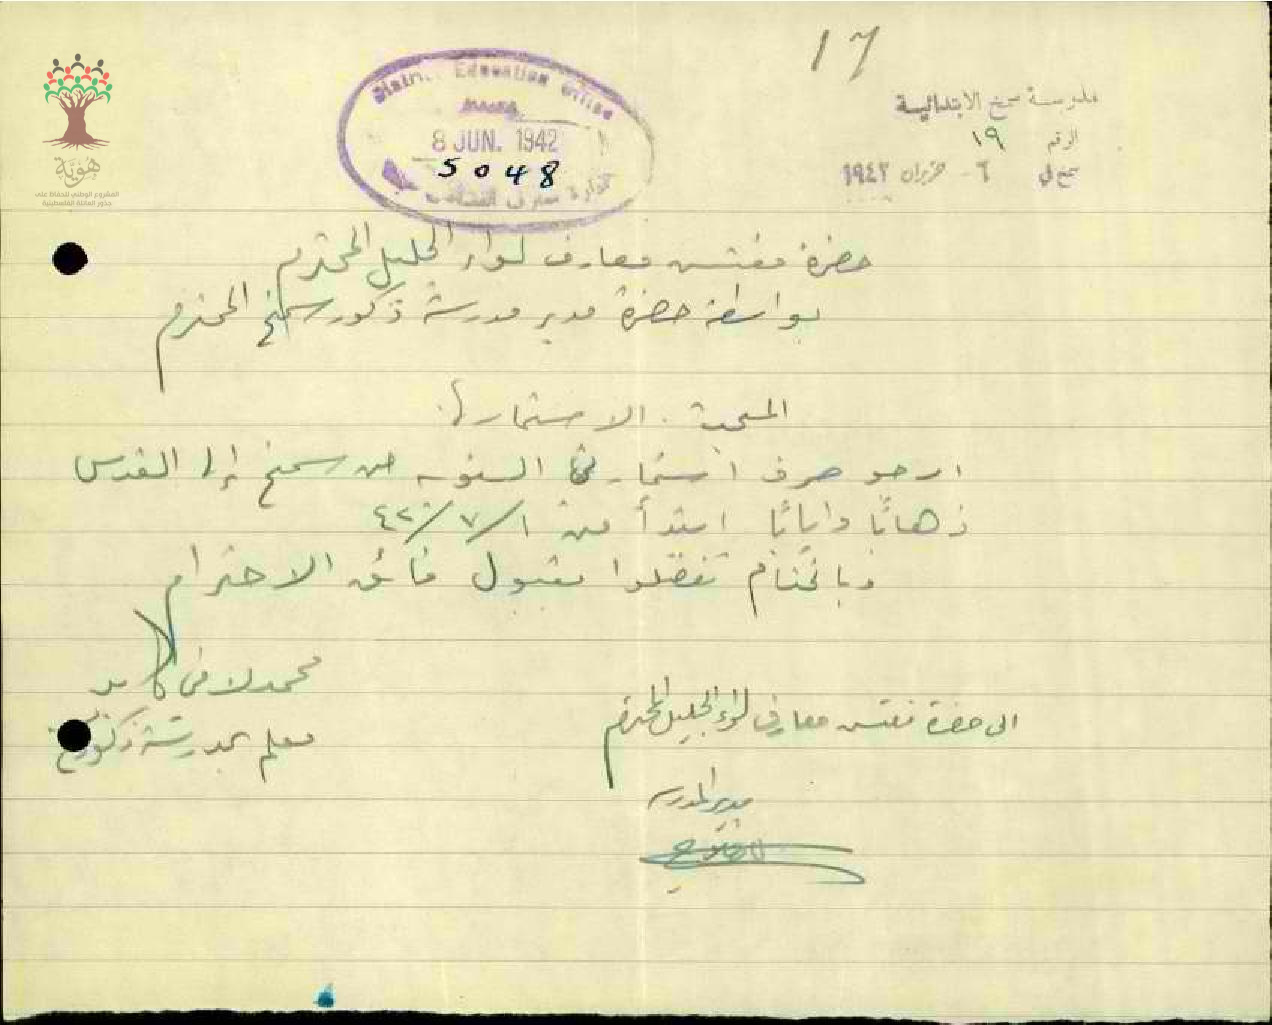 17
مدرسة سمخ الابتدائية
الرقم ١٩
سمخ في ٦ - حزيران ١٩٤٢
District Education Office
8 JUN. 1942
5048
هُوِيَّة
المشروع الوطني للحفاظ على
جذور العائلة الفلسطينية
حضرة مفتش معارف لواء الجليل المحترم
بواسطة حضرة مدير مدرسة ذكور سمخ المحترم
الاستمارة
ارجو صرف استمارة السفر من سمخ إلى القدس
ذهابًا وايابًا ابتدأ من ١/٧/٤٢
وبالختام تفضلوا بقبول فائق الاحترام
محمد لافي
معلم بمدرسة ذكور سمخ
الى حضرة مفتش معارف لواء الجليل المحترم
مدير المدرسة